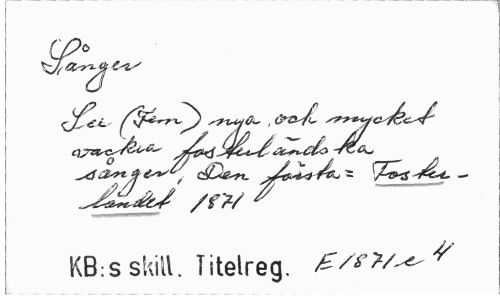 Sånger
Se: (Fem) nya och mycket
vackra fosterländska
sånger, Den första = Foster-
landet 1871
KB:s skill. Titelreg. E 1871 e 4